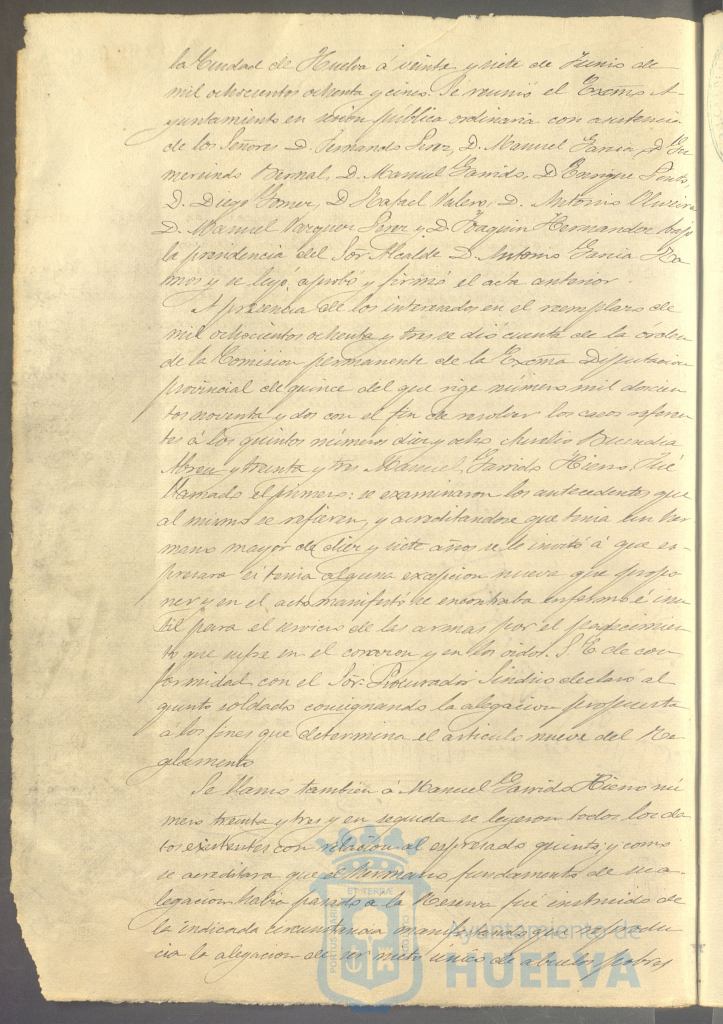 la Ciudad de Huelva á veinte y siete de Junio de
mil ochocientos ochenta y cinco. Se reunió el Excmo A-
yuntamiento en sesion pública ordinaria con asistencia
de los Señores D. Fernando Perez, D. Manuel Garcia, D. Gu
mersindo Bernal, D. Manuel Garrido, D Enrique
D. Diego Gomez, D Rafael Valero, D. Antonio Oliveira
D. Manuel Vazquez Perez y D. Joaquin Hernandez bajo
la presidencia del Sor Alcalde D. Antonio Garcia Ra
mos y se leyó, aprobó y firmó el acta anterior.
A presencia de los interesados en el reemplazo de
mil ochocientos ochenta y tres se dió cuenta de la órden
de la Comision permanente de la Excma Diputacion
provincial de quince del que rige número mil doscien
tos noventa y dos con el fin de resolver los casos referen
tes á los quintos números diez y ocho Aurelio Buendia
Abreu y treinta y tres Manuel Garrido Hierro. Fué
llamado el primero: se examinaron los antecedentes que
al mismo se refieren, y acreditandose que tenia un her
mano mayor de diez y siete años se le invitó á que es-
presara si tenia alguna excepcion nueva que propo
ner y en el acto manifestó se encontraba enfermo é inu
til para el servicio de las armas por el padecimien
to que sufre en el corazon y en los oidos. S. E. de con
formidad con el Sor. Procurador Sindico declaró al
quinto soldado consignando la alegacion propuesta
á los fines que determina el articulo nueve del Re
glamento
Se llamó tambien á Manuel Garrido Hierro nú
mero treinta y tres y en seguida se leyeron todos los da
tos existentes con relacion al espresado quinto, y como
se acreditara que el hermano fundamento de su a
legacion habia pasado a la Reserva fué instruido de
la indicada circunstancia manifestando que reprodu
cia la alegacion de ser nieto único de abuelos pobres
PORTUS MARIS
ET TERRÆ
CUSTODIA
Ayuntamiento de
HUELVA